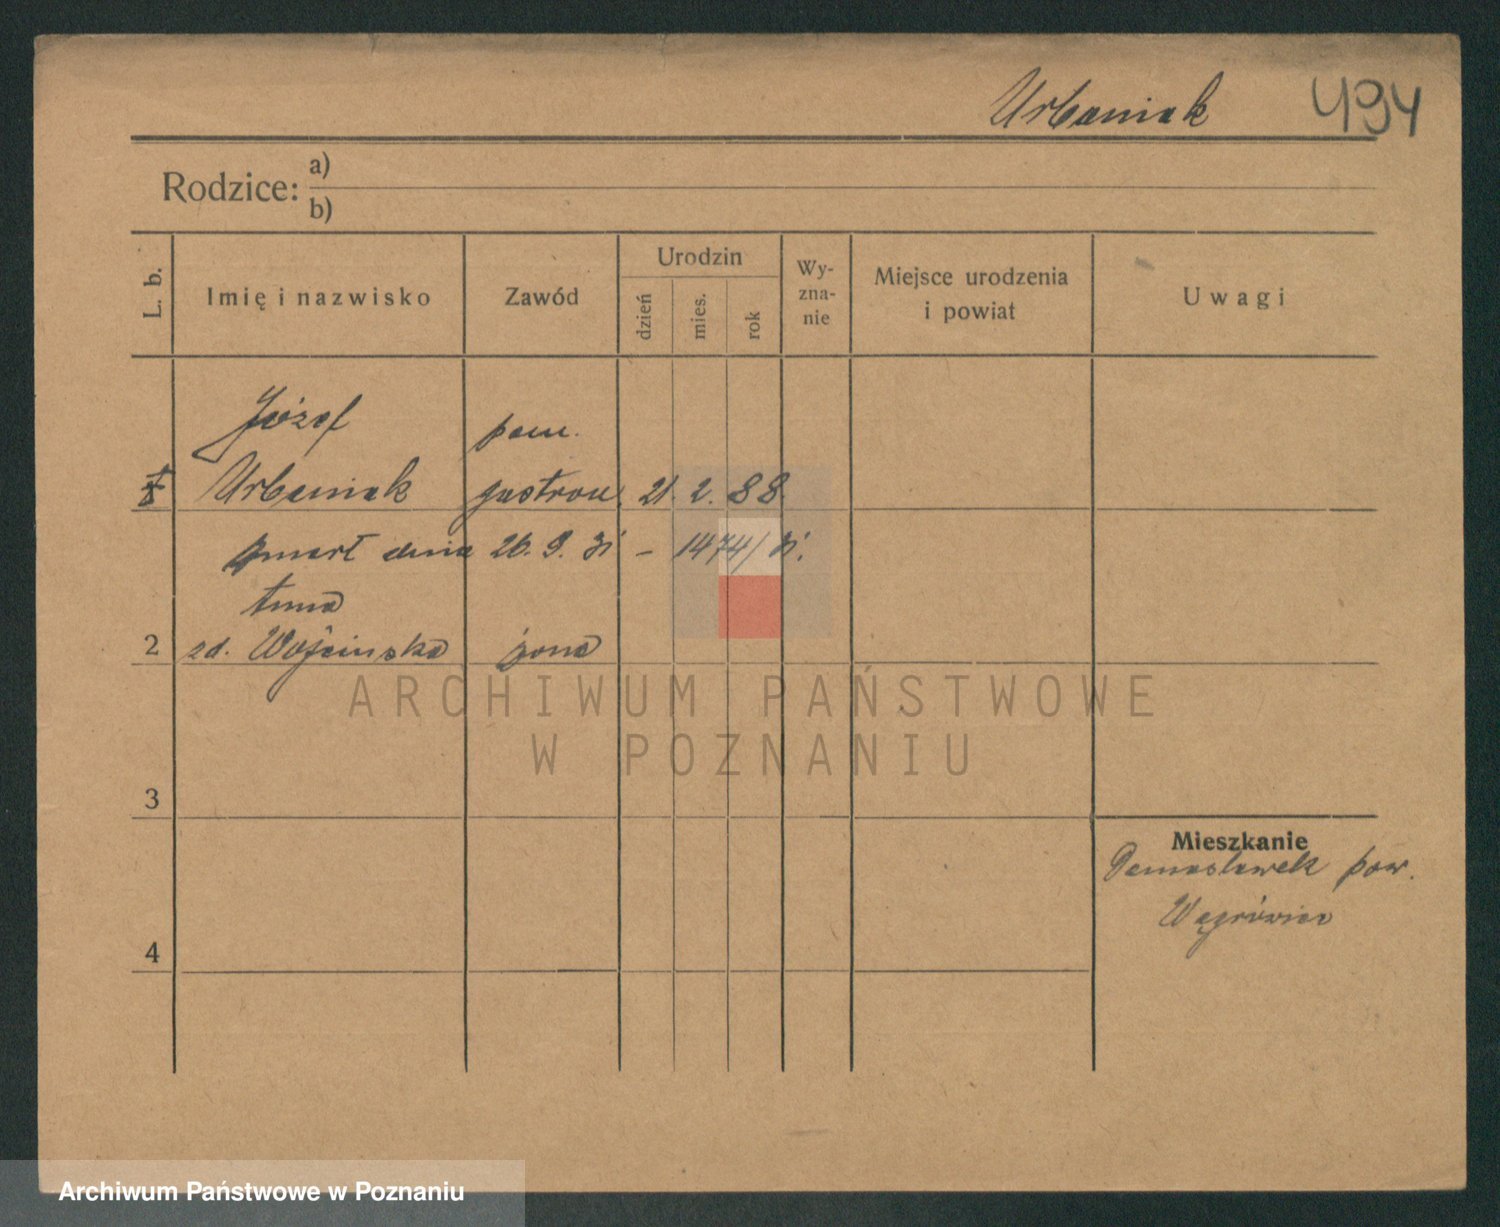 Urbaniak 494
Rodzice: a)
b)
L. b. Imię i nazwisko Zawód Urodzin dzień mies. rok Wy-zna-nie Miejsce urodzenia i powiat Uwagi
Józef pom.
Urbaniak gastron. 21. 2. 88.
zmarł dnia 26. 9. 31 – 1474/31.
Anna
2 zd. Wójcinska żona
ARCHIWUM PAŃSTWOWE
W POZNANIU
3
Mieszkanie
Damasławek pow.
Wągrówiec
4
Archiwum Państwowe w Poznaniu